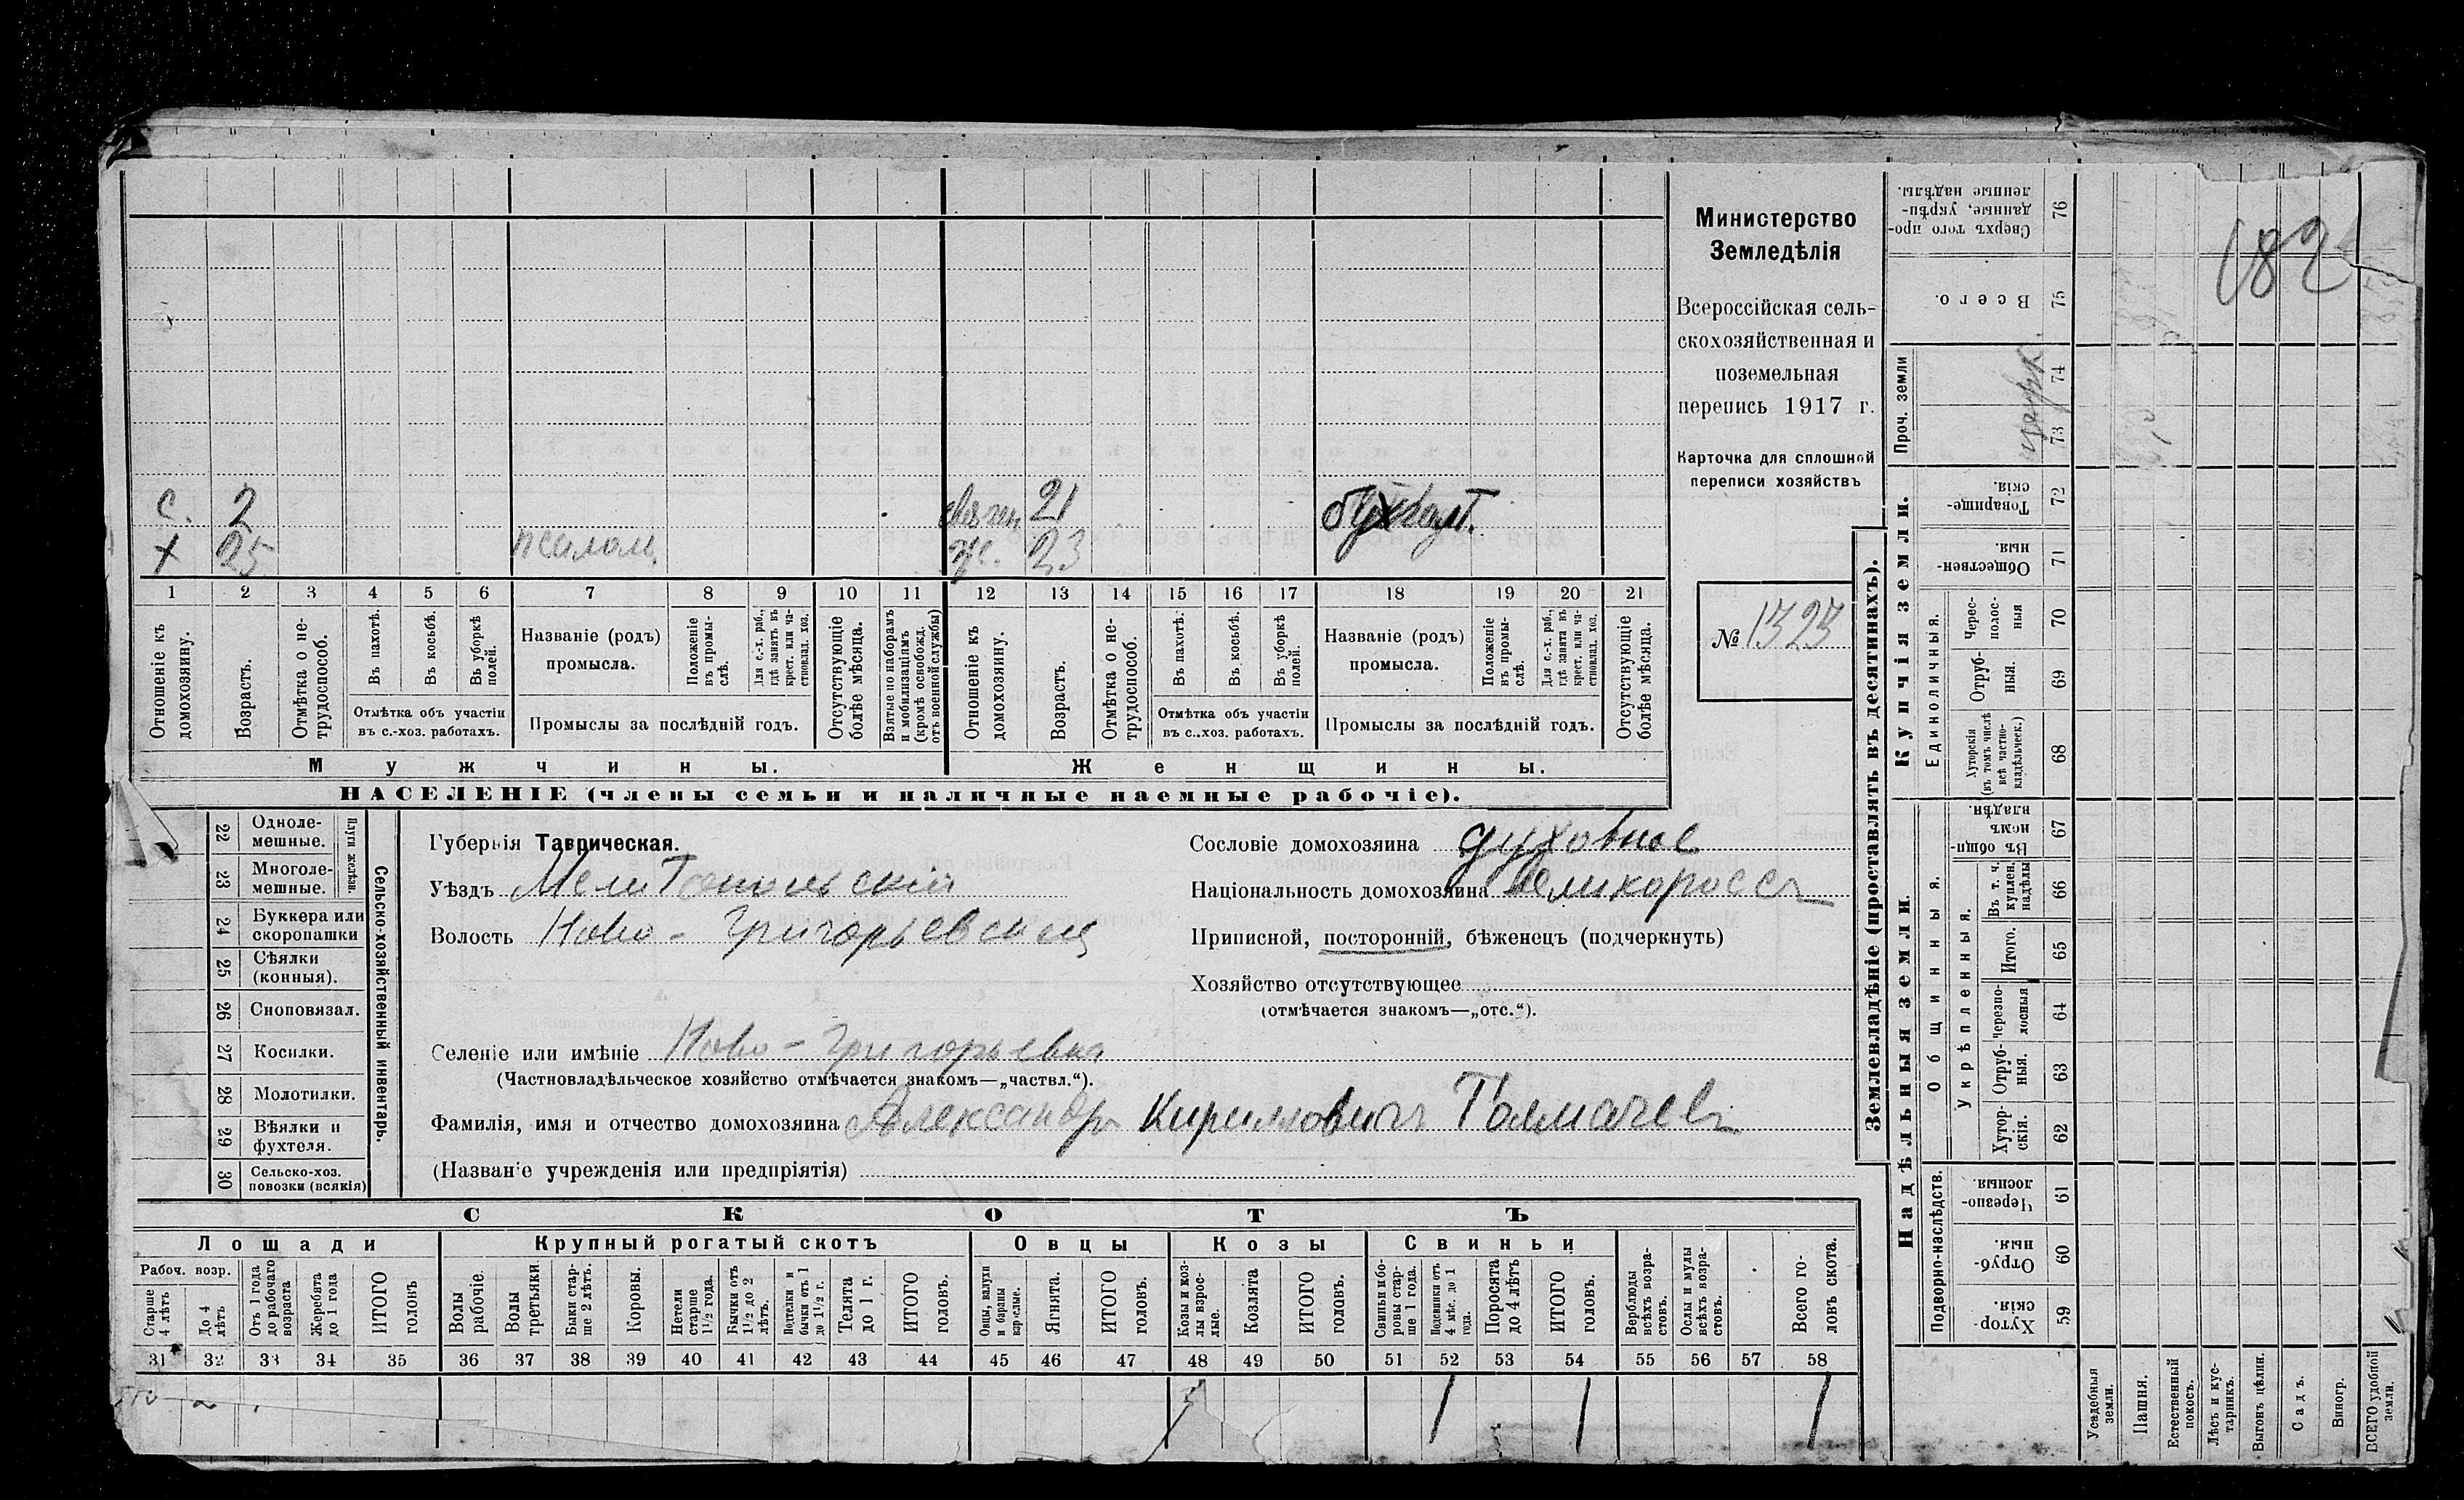 182
Министерство
Земледѣлія
Всероссійская сель-
скохозяйственная и
поземельная
перепись 1917 г.
Карточка для сплошной
переписи хозяйствъ
№ 1323
с. 2
21 бухгалт.
х 25 псалом. ж. 23
1 2 3 4 5 6 7 8 9 10 11 12 13 14 15 16 17 18 19 20 21
Отношеніе къ домохозяину.
Возрастъ.
Отмѣтка о не-трудоспособ.
Въ пахотѣ.
Въ косьбѣ.
Въ уборкѣ полей.
Отмѣтка объ участіи
въ с.-хоз. работахъ.
Названіе (родъ)
промысла.
Положеніе въ промы-слѣ.
Для с.-х. раб., гдѣ занятъ въ крест. или ча-стновлад. хоз.
Промыслы за послѣдній годъ.
Отсутствующіе болѣе мѣсяца.
Взятые по наборамъ и мобилизаціямъ (кромѣ освобожд. отъ военной службы)
Отношеніе къ домохозяину.
Возрастъ.
Отмѣтка о не-трудоспособ.
Въ пахотѣ.
Въ косьбѣ.
Въ уборкѣ полей.
Отмѣтка объ участіи
въ с.-хоз. работахъ.
Названіе (родъ)
промысла.
Положеніе въ промы-слѣ.
Для с.-х. раб., гдѣ занята въ крест. или ча-стновлад. хоз.
Промыслы за послѣдній годъ.
Отсутствующіе болѣе мѣсяца.
Мужчины. Женщины.
НАСЕЛЕНІЕ (члены семьи и наличные наемные рабочіе).
22 Одноле-мешные.
23 Многоле-мешные.
Плуги желѣзн.
24 Буккера или скоропашки
25 Сѣялки (конныя).
26 Сноповязал.
27 Косилки.
28 Молотилки.
29 Вѣялки и фухтеля.
30 Сельско-хоз. повозки (всякія)
Сельско-хозяйственный инвентарь.
Губернія Таврическая.
Уѣздъ Мелитопольскій
Волость Ново-Григорьевская
Селеніе или имѣніе Ново-Григорьевка
(Частновладѣльческое хозяйство отмѣчается знакомъ—„частвл.“).
Фамилія, имя и отчество домохозяина Александръ Кирилловичъ Толмачевъ
(Названіе учрежденія или предпріятія)
Сословіе домохозяина духовное
Національность домохозяина великороссъ
Приписной, посторонній, бѣженецъ (подчеркнуть)
Хозяйство отсутствующее
(отмѣчается знакомъ—„отс.“).
СКОТЪ
Лошади Крупный рогатый скотъ Овцы Козы Свиньи
Рабоч. возр.
Старше 4 лѣтъ
До 4 лѣтъ
Отъ 1 года до рабочаго возраста
Жеребята до 1 года
ИТОГО головъ
Волы рабочіе.
Волы третьяки.
Быки стар-ше 2 лѣтъ.
Коровы.
Нетели старше 1½ года.
Бычки отъ 1½ до 2 лѣтъ.
Подтелки и бычки отъ 1 до 1½ г.
Телята до 1 г.
ИТОГО головъ.
Овцы, валухи и бараны взрослые.
Ягнята.
ИТОГО головъ.
Козы и коз-лы взрос-лые.
Козлята
ИТОГО головъ.
Свиньи и бо-ровы стар-ше 1 года.
Подсвинки отъ 4 мѣс. до 1 года.
Поросята до 4 лѣтъ
ИТОГО головъ.
Верблюды всѣхъ возра-стовъ.
Ослы и мулы всѣхъ возра-стовъ.
Всего го-ловъ скота.
31 32 33 34 35 36 37 38 39 40 41 42 43 44 45 46 47 48 49 50 51 52 53 54 55 56 57 58
1 1 1
Землевладѣніе (проставлять въ десятинахъ).
Надѣльныя земли. Купчія земли. Проч. земли
Подворно-наслѣдств. Общинныя. Единоличныя.
Укрѣпленныя.
59 Хутор-скія.
60 Отруб-ныя.
61 Черезпо-лосныя
62 Хутор-скія.
63 Отруб-ныя.
64 Черезпо-лосныя
65 Итого.
66 Въ т. ч. куплен. надѣлы
67 Въ общи-номъ владѣн.
68 Хуторскія (въ томъ числѣ всѣ частно-владѣльческ.)
69 Отруб-ныя.
70 Черес-полос-ныя
71 Обществен-ныя.
72 Товарище-скія.
73 74 церк.
75 Всего.
76 Сверхъ того про-данные, укрѣп-ленные надѣлы.
Усадебныя земли.
Пашня.
Естественный покосъ.
Лѣсъ и кус-тарникъ.
Выгонъ цѣлин.
Садъ.
Виногр.
ВСЕГО удобной земли.